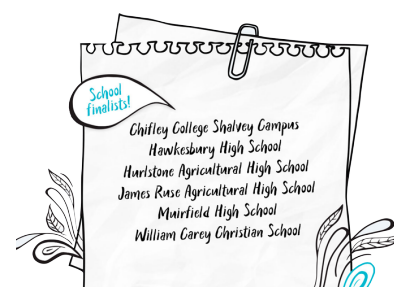 School
finalists!
Chifley College Shalvey Campus
Hawkesbury High School
Hurlstone Agricultural High School
James Ruse Agricultural High School
Muirfield High School
William Carey Christian School